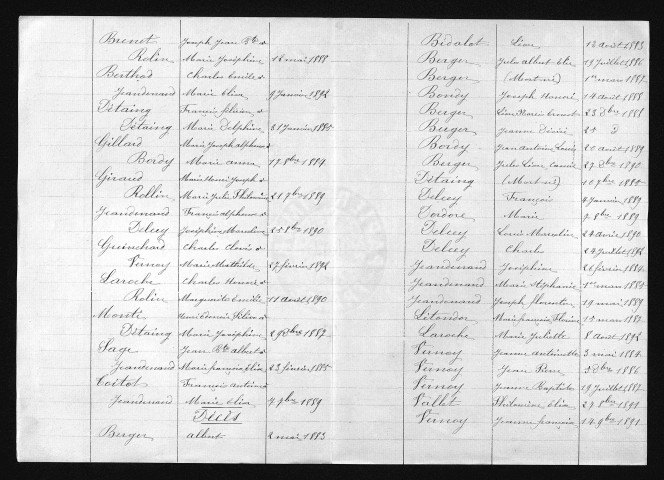 Brenet Joseph Jean Bte &
Rolin Marie Joséphine 12 mai 1888
Berthod Charles Emile &
Jeandenand Marie Elise 9 Janvier 1892
Détaing François Julien &
Détaing Marie Delphine 31 Janvier 1885
Gillard Marie Joseph alphonse &
Bordy Marie anna 17 8bre 1884
Giraud Marie Henri Joseph &
Rollin Marie Julie Philomène 21 9bre 1889
Jeandenand François alphonse &
Delcey Joséphine Marceline 25 8bre 1890
Guinchard Charles Clovis &
Vernoy Marie Mathilde 27 février 1892
Laroche Charles Honoré &
Rolin Marguerite Emélie 11 août 1890
Monti &
Détaing Marie Joséphine 29 Xbre 1887
Sage Jean Bte albert &
Jeandenand Marie françoise Elisa 23 février 1885
Coitot François Antoine &
Jeandenand Marie Elisa 7 9bre 1889
Décès
Berger albert 2 mai 1883
Bidalot Léon 12 août 1893
Berger Jules Albert Elie 19 Juillet 1886
Berger (Mort né) 1er mars 1882
Bondy Joseph Honoré 14 août 1888
Berger Léon Ernest 23 Xbre 1881
Berger Jeanne Désirée 25 d
Bordy Jean Antoine Louis 20 août 1889
Berger Jules Léon Camille 27 Xbre 1890
Détaing (Mort né) 10 9bre 1885
Delcey François 4 Janvier 1889
Dordore Marie 7 8bre 1889
Delcey Louis Marcelin 24 avril 1890
Delcey Charles 24 Juillet 1892
Jeandenand Joséphine 26 février 1884
Jeandenand Marie Stéphanie 1er mars 1885
Jeandenand Joseph Florentin 19 mai 1889
Litondor Marie françoise 15 mars 1887
Laroche Marie Juliette 8 août 1892
Vernoy Jeanne Antoinette 3 mai 1884
Vernoy Jean Pierre 5 Xbre 1886
Vernoy Jeanne Baptiste 19 Juillet 1887
Vallet Philomène Elisa 27 8bre 1891
Vernoy Jeanne françoise 14 9bre 1891